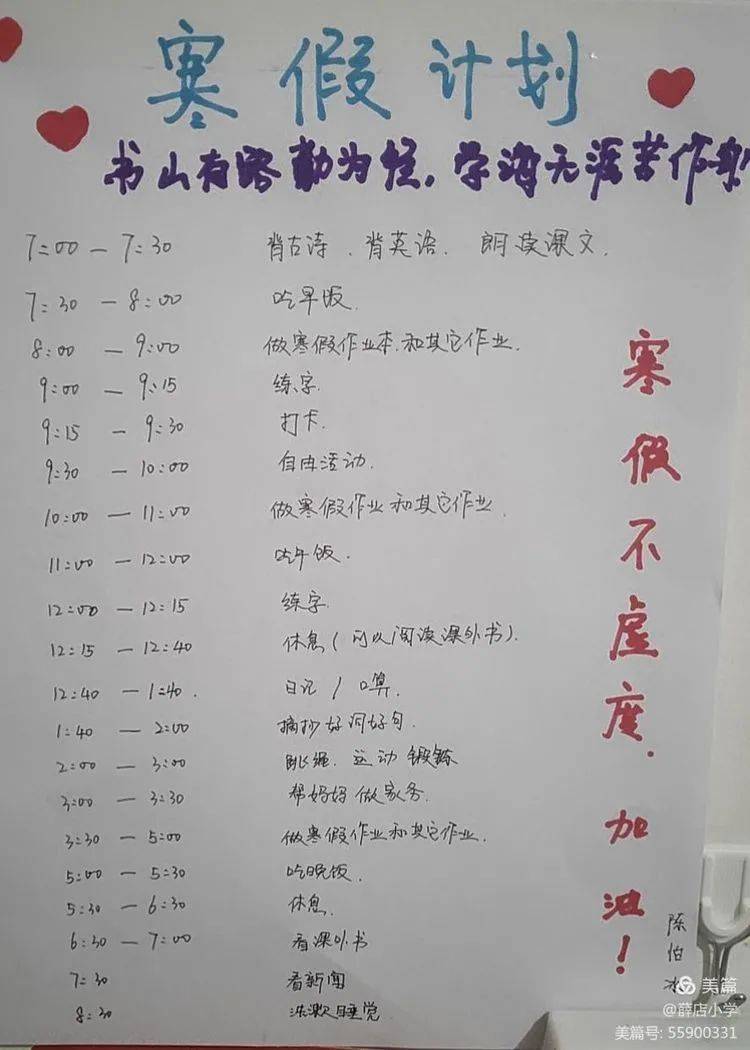 寒假计划
书山有路勤为径，学海无涯苦作舟
7:00 — 7:30 背古诗、背英语、朗读课文.
7:30 — 8:00 吃早饭.
8:00 — 9:00 做寒假作业本.和其它作业.
9:00 — 9:15 练字.
9:15 — 9:30 打卡.
9:30 — 10:00 自由活动.
10:00 — 11:00 做寒假作业和其它作业.
11:00 — 12:00 吃午饭.
12:00 — 12:15 练字.
12:15 — 12:40 休息(可以阅读课外书).
12:40 — 1:40. 日记 / 口算.
1:40 — 2:00 摘抄好词好句.
2:00 — 3:00 跳绳.运动锻炼
3:00 — 3:30 帮妈妈做家务.
3:30 — 5:00 做寒假作业和其它作业.
5:00 — 5:30 吃晚饭.
5:30 — 6:30 休息.
6:30 — 7:00 看课外书
7:30 看新闻
8:30 洗漱睡觉
寒假不虚度.加油！
陈伯冰
美篇
@薛店小学
美篇号: 55900331